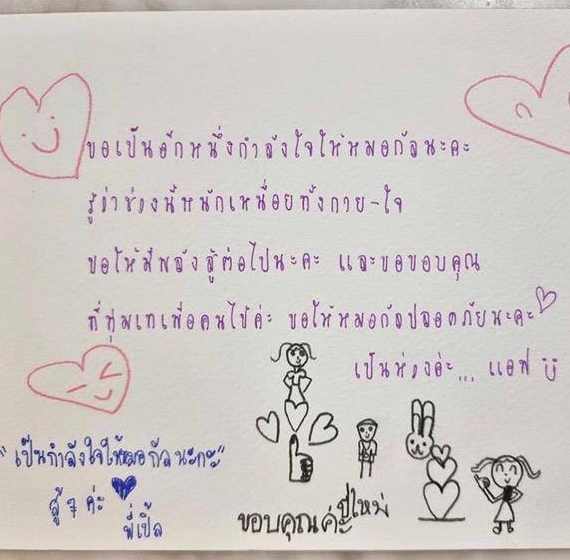 ขอเป็นอีกหนึ่งกำลังใจให้หมอกัลนะคะ
รู้ว่าช่วงนี้หนักเหนื่อยทั้งกาย-ใจ
ขอให้มีพลังสู้ต่อไปนะคะ และขอขอบคุณ
ที่ทุ่มเทเพื่อคนไข้ค่ะ ขอให้หมอกัลปลอดภัยนะคะ
เป็นห่วงค่ะ... แอฟ
"เป็นกำลังใจให้หมอกัลนะคะ"
สู้ๆ ค่ะ
พี่เปิ้ล
ขอบคุณค่ะ
ปุ๊ใหม่